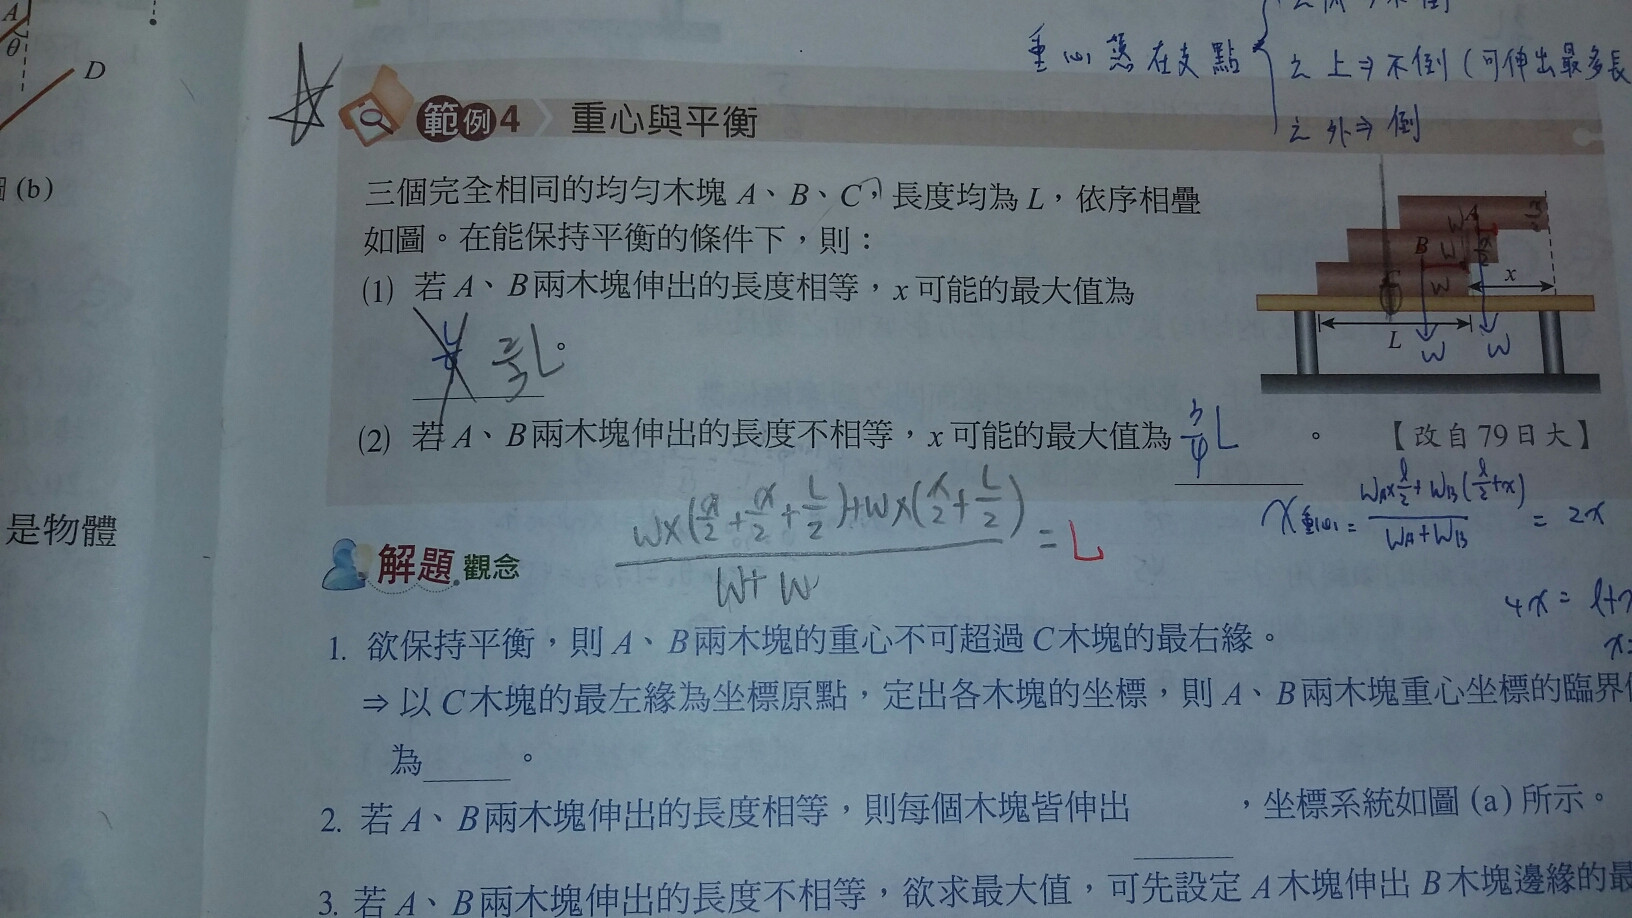 A
θ
D
(b)
重心落在支點
之上⇒不倒(可伸出最多長
之外⇒倒
範例4 重心與平衡
三個完全相同的均勻木塊 A、B、C，長度均為 L，依序相疊
如圖。在能保持平衡的條件下，則：
(1) 若 A、B 兩木塊伸出的長度相等，x 可能的最大值為
2/3 L。
(2) 若 A、B 兩木塊伸出的長度不相等，x 可能的最大值為 3/4 L。 【改自 79 日大】
A
B
W
W
W
x
L
W
W
是物體
解題觀念
W×(x/2+x/2+L/2)+W×(x/2+L/2) / W+W = L
x重心= WA×l/2+WB(l/2+x) / WA+WB = 2x
4x = l+
1. 欲保持平衡，則 A、B 兩木塊的重心不可超過 C 木塊的最右緣。
⇒ 以 C 木塊的最左緣為坐標原點，定出各木塊的坐標，則 A、B 兩木塊重心坐標的臨界
為 。
2. 若 A、B 兩木塊伸出的長度相等，則每個木塊皆伸出 ，坐標系統如圖 (a) 所示。
3. 若 A、B 兩木塊伸出的長度不相等，欲求最大值，可先設定 A 木塊伸出 B 木塊邊緣的最